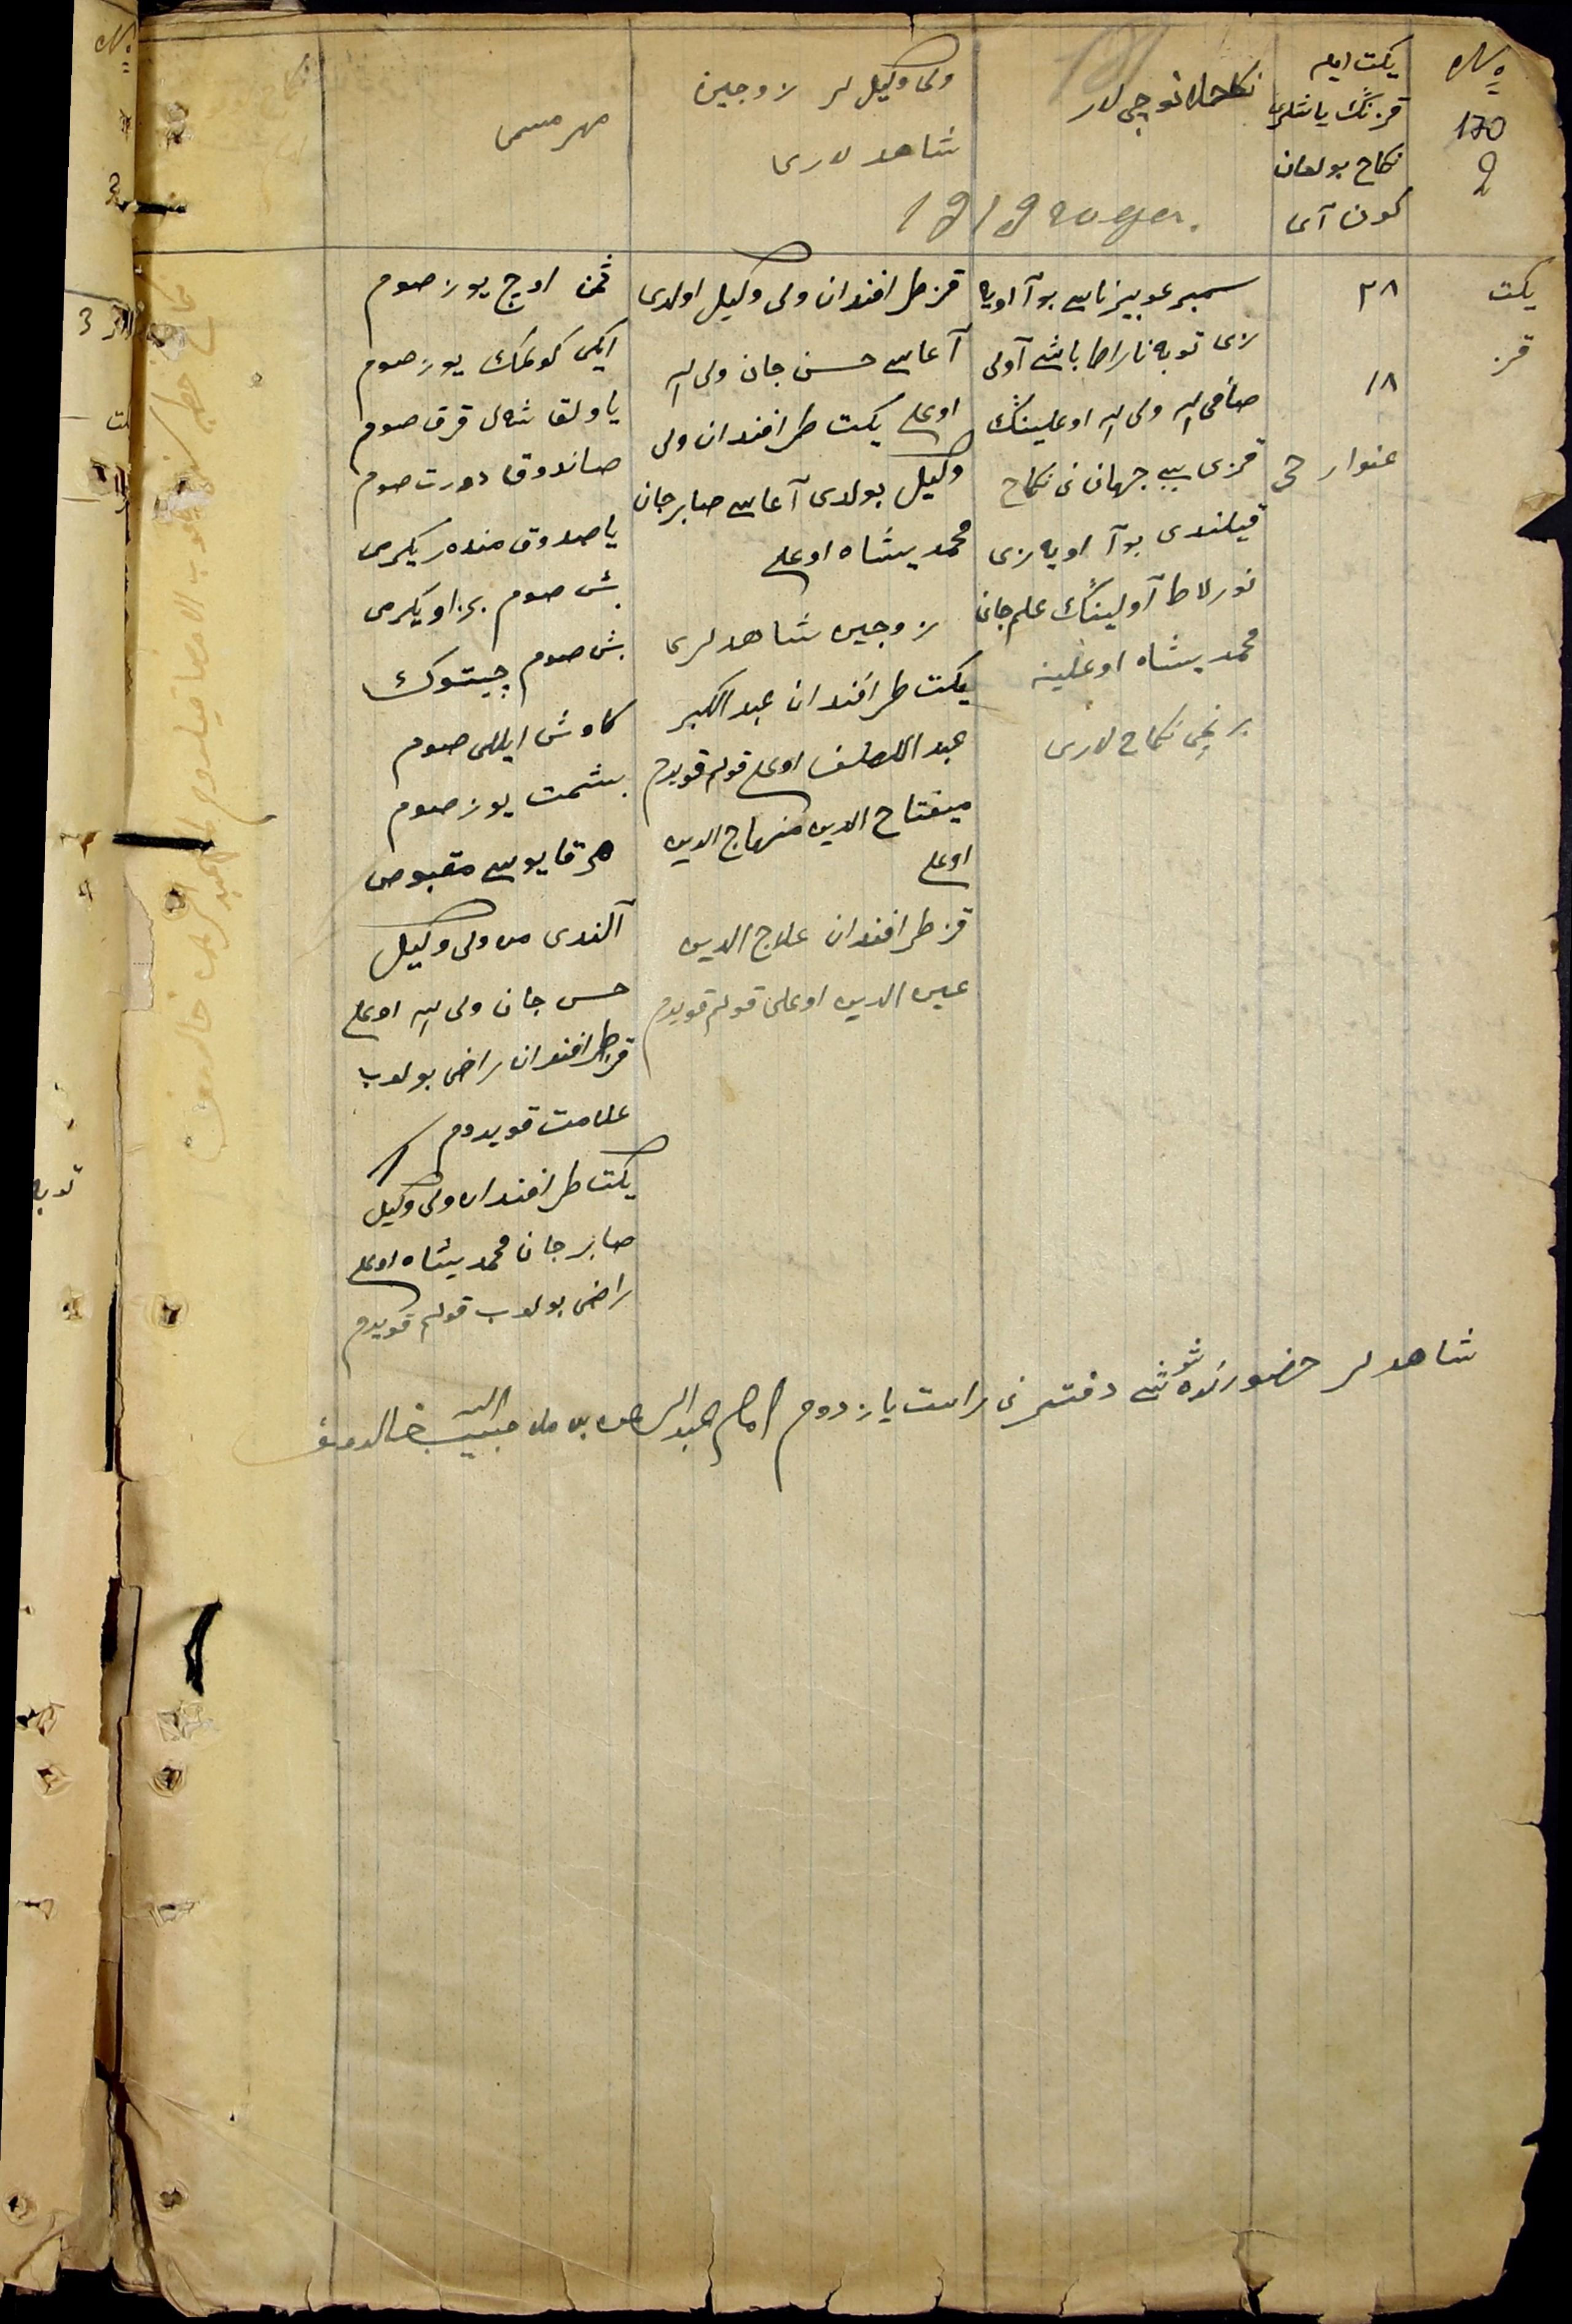 №
170
2
یکت ایله
قزننک یاشلری
نکاح بولغان
کون آی
نکاحلانوچی لار
ولی وکیل لر زوجین
شاهد لاری
مهر مسمی
1919 году.
یکت
قز
۲۸
۱۸
سمبر غوبیرناسی بوآ اویه
زی توبه ناراط باشی آولی
ولی الله اوغلیننک
قزی بیبی جهان نی نکاح
قیلندی بوآ اویه زی
نورلاط آولیننک علم جان
محمد یشاه اوغلینه
برنچی نکاح لاری
قز طرافندان ولی وکیل اولدی
آغاسی حسن جان ولی الله
اوغلی یکت طرافندان ولی
وکیل بولدی آغاسی صابر جان
محمد یشاه اوغلی
زوجین شاهدلری
یکت طرافندان عبد الکبیر
عبد اللطیف اوغلی قولم قویدم
میفتاح الدین منهاج الدین
اوغلی
قز طرافندان علاج الدین
عین الدین اوغلی قولم قویدم
ثمن اوچ یوز صوم
ایکی کولمک یوز صوم
یاولق شال قرق صوم
صاندوق دورت صوم
یاصدوق مندر یکرمی
بش صوم بزاو یکرمی
بش صوم چیتوک
کاوش ایللی صوم
بشمت یوز صوم
هر قایوسی مقبوض
آلندی من ولی وکیل
حسن جان ولی الله اوغلی
قز طرافندان راضی بولوب
علامت قویدوم
یکت طرافندان ولی وکیل
صابر جان محمد یشاه اوغلی
راضی بولوب قولم قویدم
شاهد لر حضورنده شوشی دفترنی راست یازدوم امام عبد الرحمن بن ملا حبیب الله خالدوف